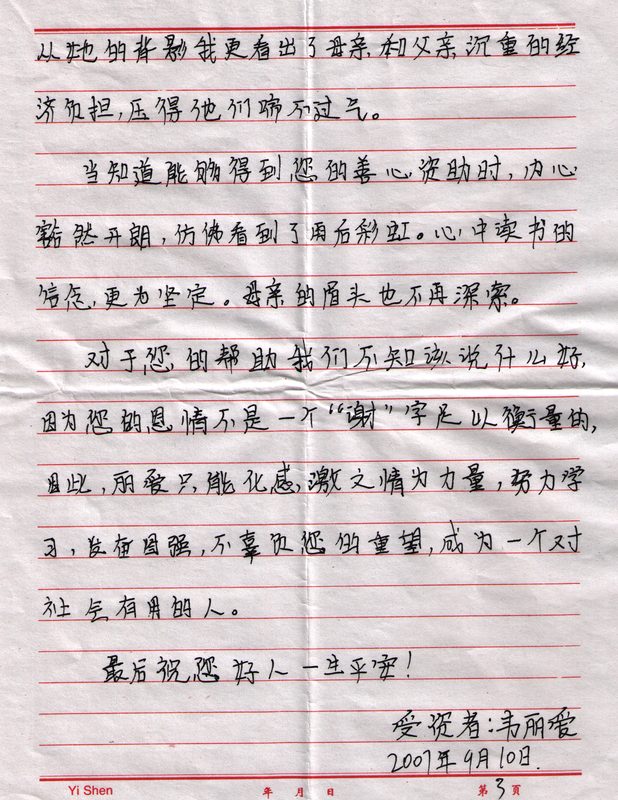 从她的背影我更看出了母亲和父亲沉重的经
济负担,压得他们啼不过气。
当知道能够得到您的善心资助时,内心
豁然开朗,仿佛看到了雨后彩虹。心中读书的
信念,更为坚定。母亲的眉头也不再深索。
对于您的帮助我们不知该说什么好,
因为您的恩情不是一个“谢”字足以衡量的,
因此,丽爱只能化感激之情为力量,努力学
习,发奋图强,不辜负您的重望,成为一个对
社会有用的人。
最后祝您好人一生平安!
受资者:韦丽爱
2007年9月10日.
Yi Shen 年 月 日 第3页